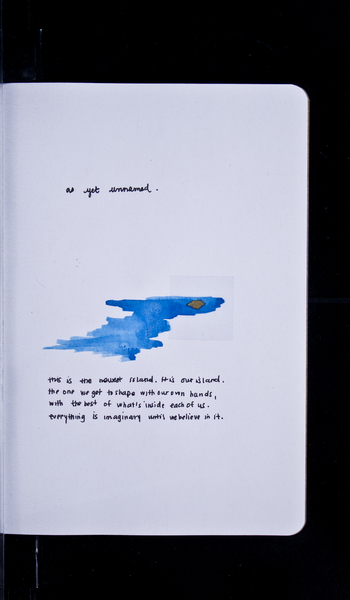 as yet unnamed.
this is the newest island. it is our island.
the one we get to shape with our own hands,
with the best of what's inside each of us.
everything is imaginary until we believe in it.